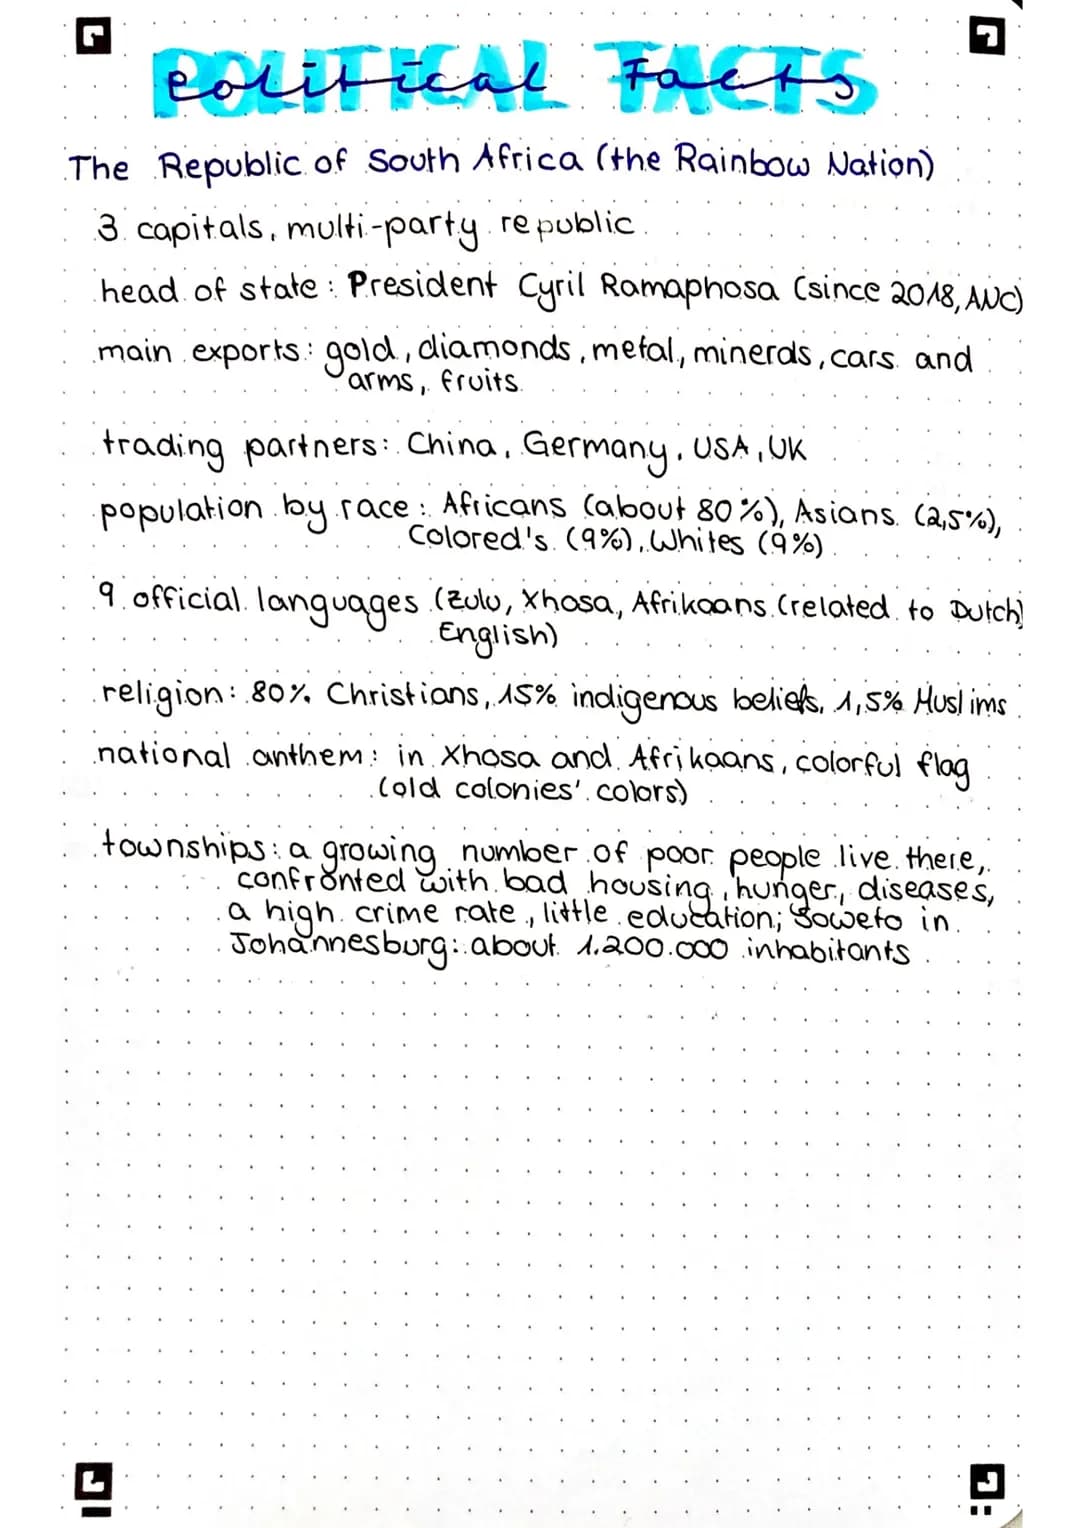 POLITICAL FACTS
Political Facts
The Republic of South Africa (the Rainbow Nation)
3 capitals, multi-party republic
head of state: President Cyril Ramaphosa (since 2018, ANC)
main exports: gold, diamonds, metal, minerals, cars and
arms, fruits
trading partners: China, Germany, USA, UK
population by race: Africans (about 80%), Asians (2,5%),
Colored's (9%), Whites (9%)
9 official languages (Zulu, Xhosa, Afrikaans (related to Dutch)
English)
religion: 80% Christians, 15% indigenous beliefs, 1,5% Muslims
national anthem: in Xhosa and Afrikaans, colorful flag
(old colonies' colors)
townships: a growing number of poor people live there,
confronted with bad housing, hunger, diseases,
a high crime rate, little education; Soweto in
Johannesburg: about 1.200.000 inhabitants